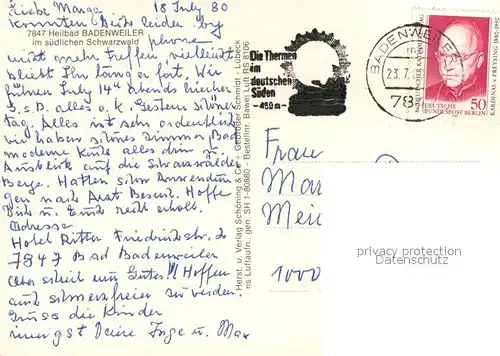 Liebe Marga 18 July 80
konnten Dich leider by
7847 Heilbad BADENWEILER
im südlichen Schwarzwald
phone
nicht mehr treffen, vielleicht
bleibt Ihr lang fort. Wir
July 14th abends hierher
alles o.k. Gestern
tag. Alles ist sehr
wir haben Zimmer, Bad
moderne Küche alles drin u.
Ausblick auf die Schwarzwälder
Berge. Hatten schon Anwendun
gen nach Arzt Besuch. Hoffe
Dich u. Euch recht erholt.
Adresse
Hotel Ritter Friedrichstr. 2
7847 Bad Badenweiler
Gutes!! Hoffen
auch schmerzfreier zu werden.
Gruss die Kinder
innigst Deine Inge u. Max
Herst. u. Verlag Schöning & Co + Gebrüder Schmidt - Lübeck
ns Luftaufn. gen. SH 1-80880 - Bestellnr. Bawei Lu RS 8/06
Die Thermen
im
deutschen
Süden
-450 m-
BADENWEILER
23.7.
78
KARDINAL PREYSING 1880-1950
DEUTSCHER KATHOLIKENTAG
DEUTSCHE
BUNDESPOST BERLIN
50
Frau
Mar
Mei
1000
privacy protection
Datenschutz